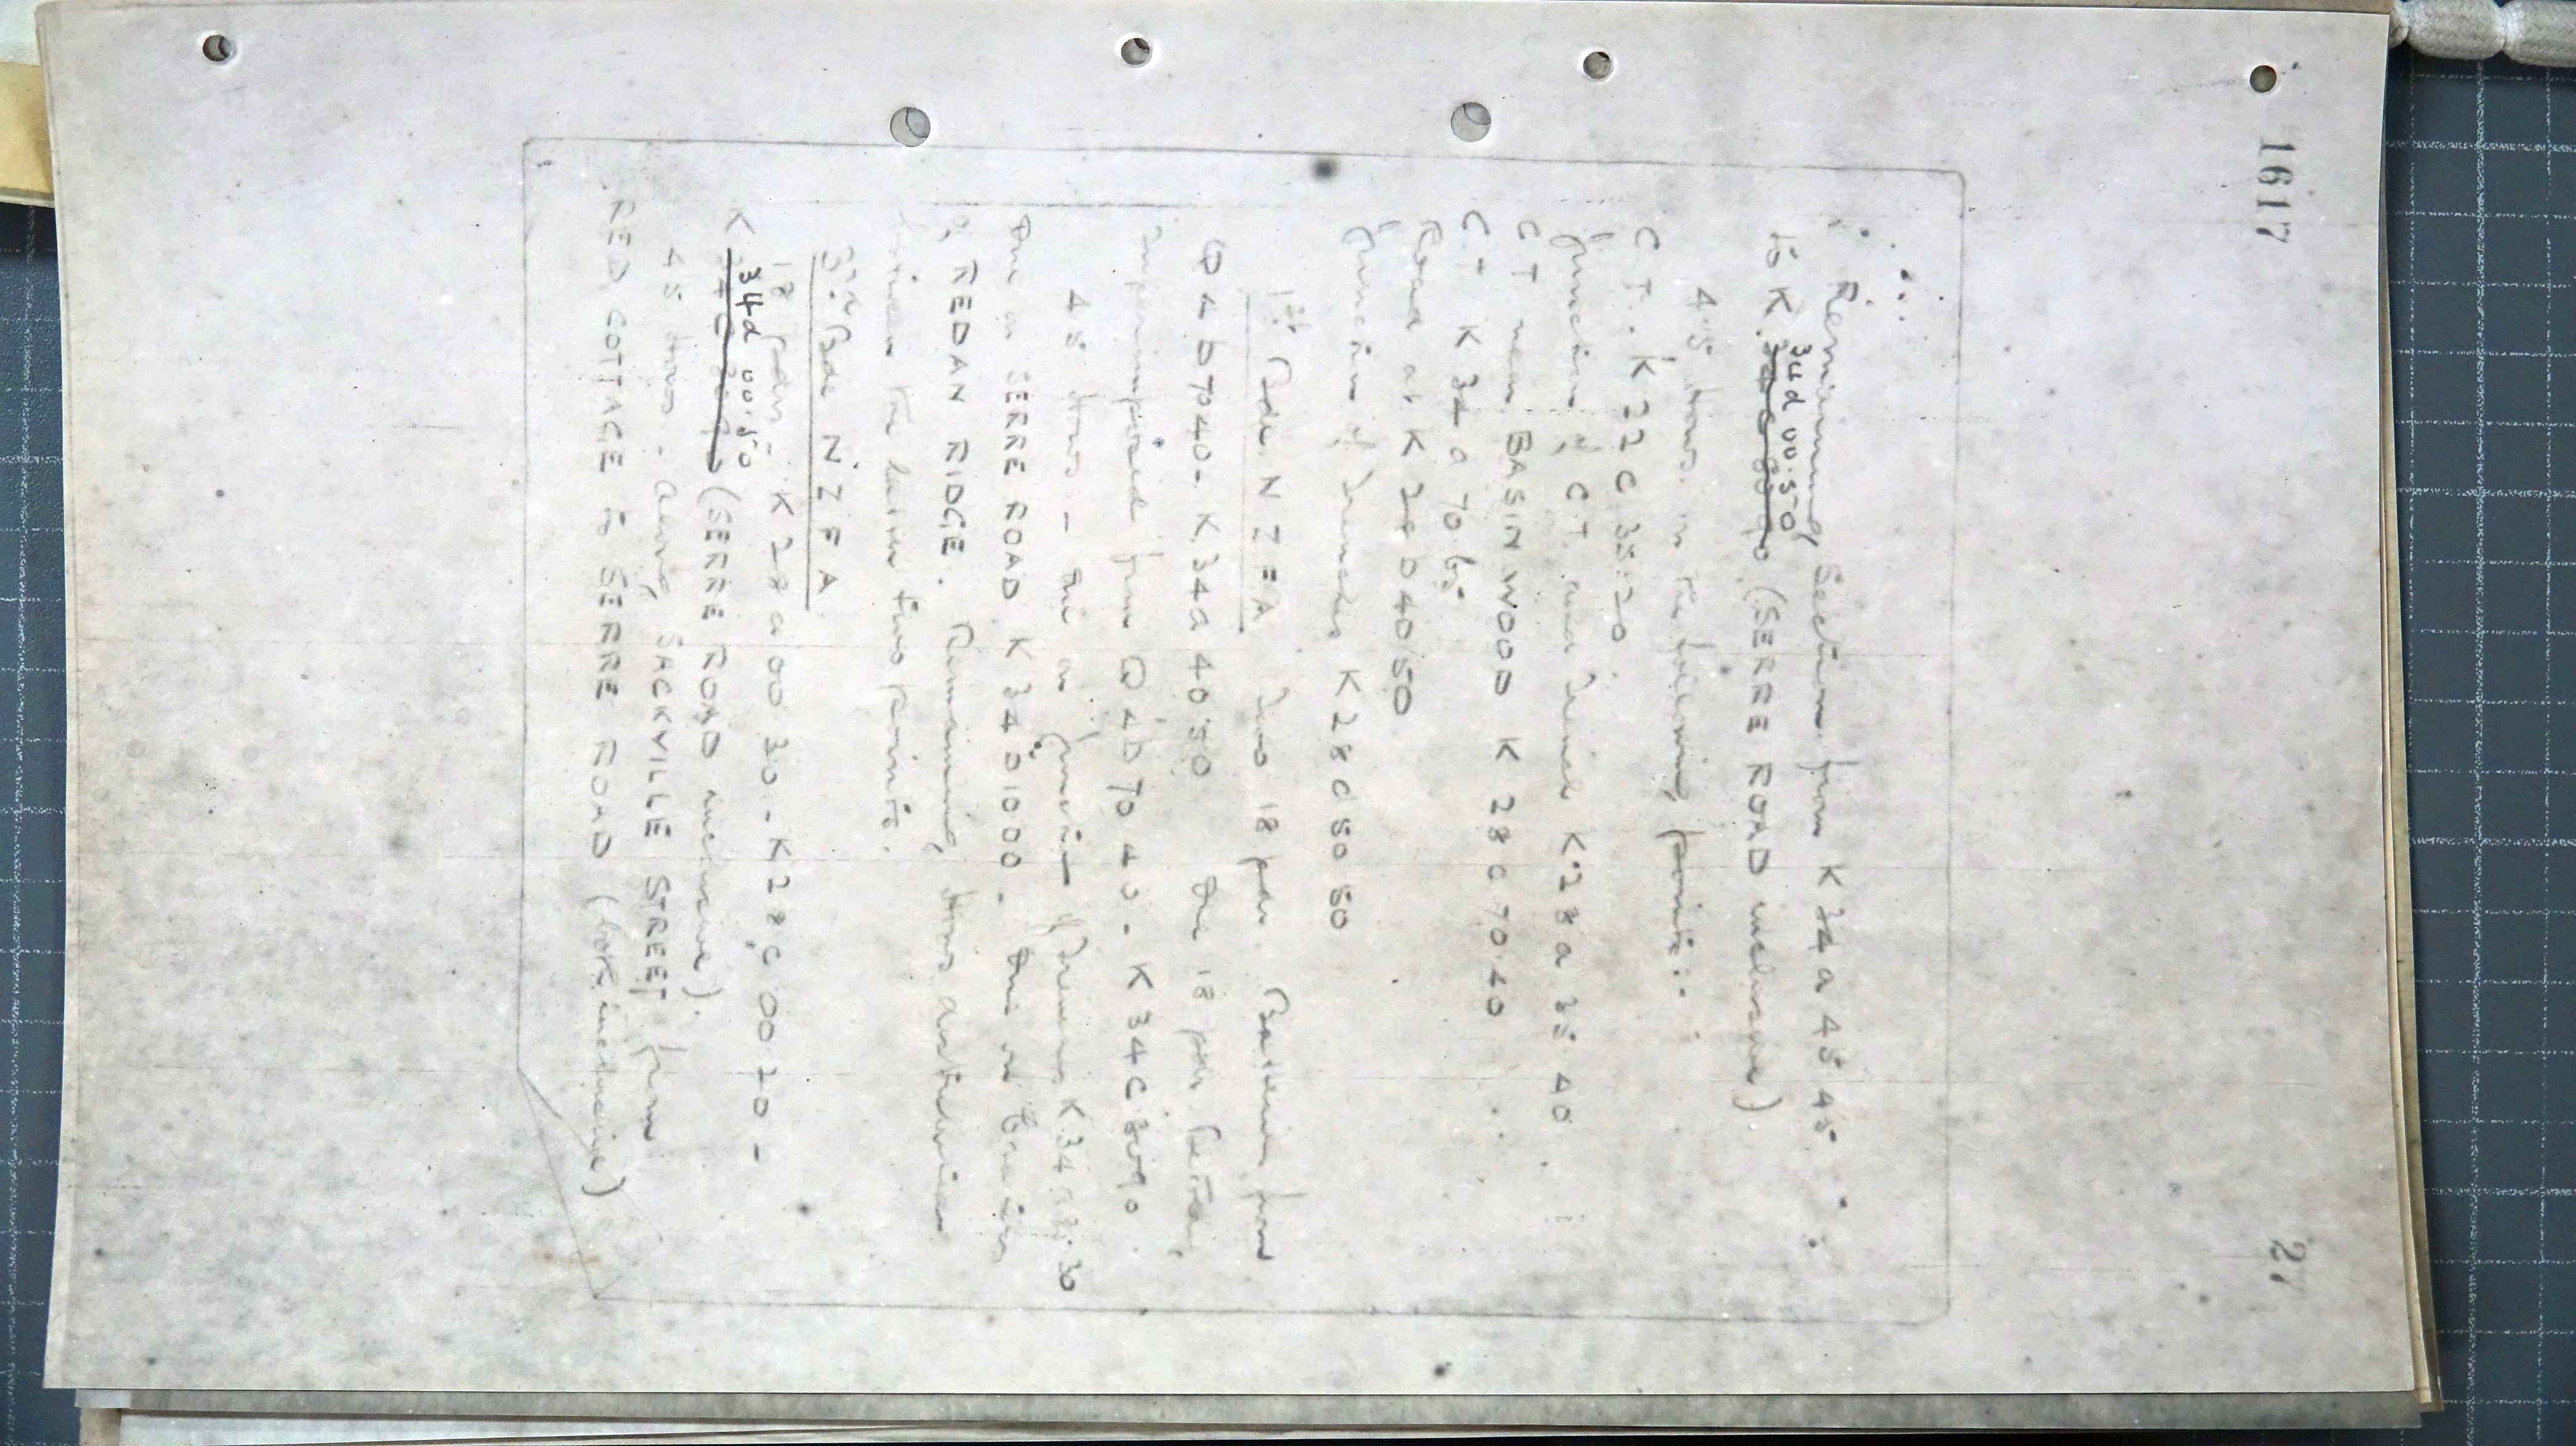 1617
27
Remaining Section from K 34 a 45 45
34d 00.50
to K (SERRE ROAD inclusive)
4.5 Hows. in the following points:-
C.T. K 22 C 35.20
Junction of C.T. and Trench K 28 a 35 40
C T near BASIN WOOD K 28 C 70.40
C.T K 34 a 70.65
Road at K 28 D 40 50
Junction of Trenches K 28 d 50 50
1st Bde. N Z F A Two 18 pdr. Batteries from
Q 4 b 70 40 - K 34 a 40 50 One 18 pdr Battery
superimposed from Q 4 b 70 40 - K 34 C 80 90
45 Hows - One on Junction of Trenches K 34 a 30
One on SERRE ROAD K 34 D 10 00 - One on
of REDAN RIDGE. Remaining Hows.
between the latter two points.
3rd Bde N Z F A
18 pdrs - K 28 a 00 30 - K 28 C 00 20 -
34d 00.50
K (SERRE ROAD inclusive).
45 Hows - along SACKVILLE STREET from
RED COTTAGE to SERRE ROAD (both inclusive)